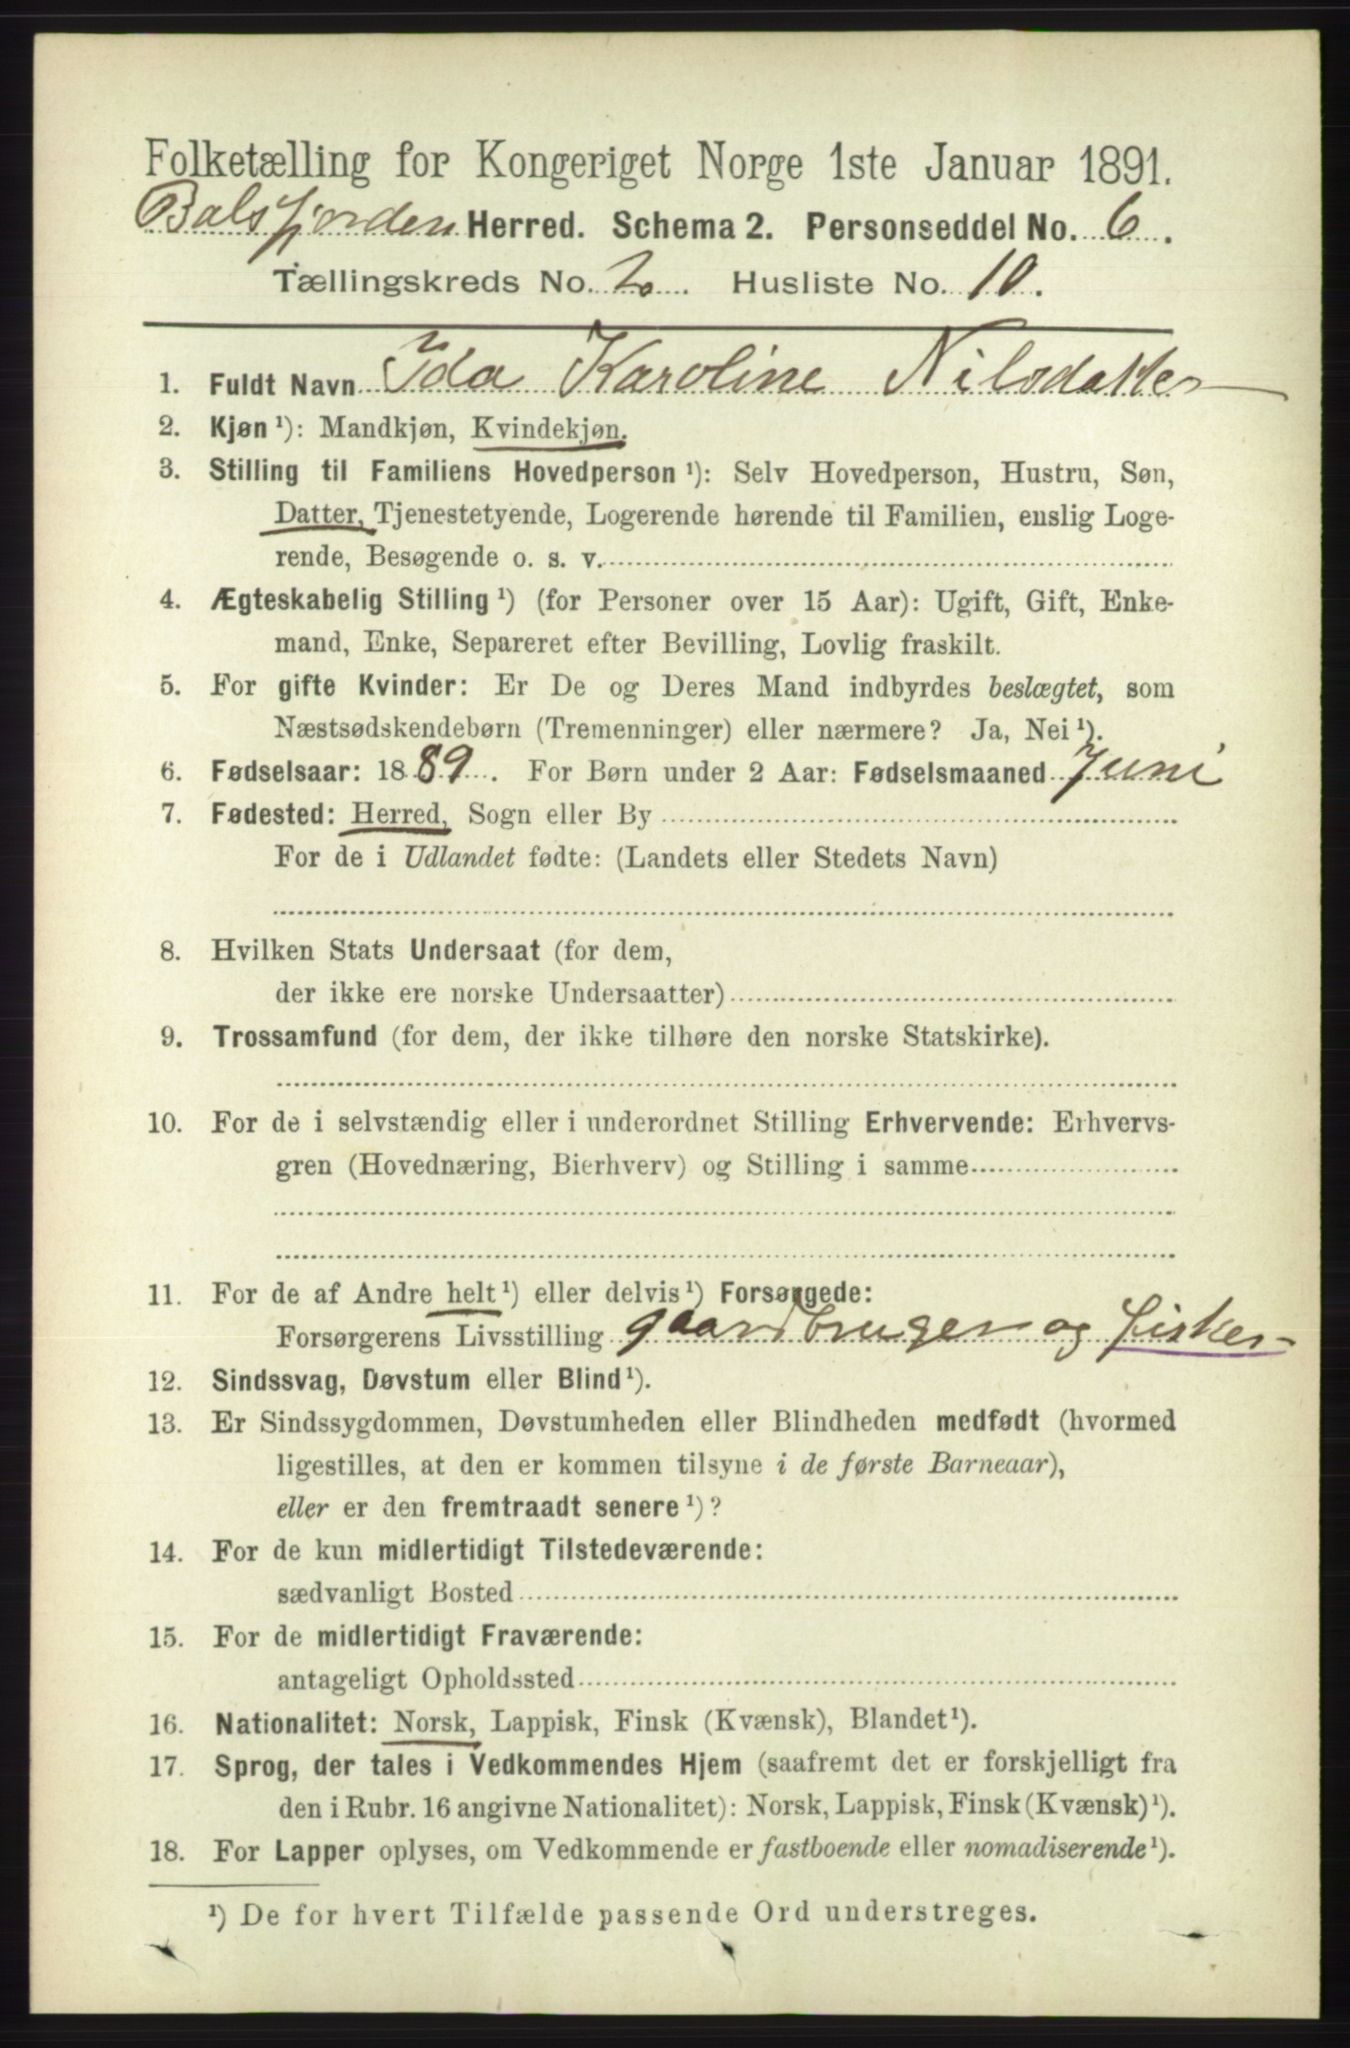 Folketælling for Kongeriget Norge 1ste Januar 1891.
Balsfjorden Herred. Schema 2. Personseddel No. 6.
Tællingskreds No. 2. Husliste No. 10.
1. Fuldt Navn Ida Karoline Nilsdatter
2. Kjøn ¹): Mandkjøn, Kvindekjøn.
3. Stilling til Familiens Hovedperson ¹): Selv Hovedperson, Hustru, Søn,
Datter, Tjenestetyende, Logerende hørende til Familien, enslig Loge-
rende, Besøgende o. s. v.
4. Ægteskabelig Stilling ¹) (for Personer over 15 Aar): Ugift, Gift, Enke-
mand, Enke, Separeret efter Bevilling, Lovlig fraskilt.
5. For gifte Kvinder: Er De og Deres Mand indbyrdes beslægtet, som
Næstsødskendebørn (Tremenninger) eller nærmere? Ja, Nei ¹).
6. Fødselsaar: 1889. For Børn under 2 Aar: Fødselsmaaned Juni
7. Fødested: Herred, Sogn eller By
For de i Udlandet fødte: (Landets eller Stedets Navn)
8. Hvilken Stats Undersaat (for dem,
der ikke ere norske Undersaatter)
9. Trossamfund (for dem, der ikke tilhøre den norske Statskirke).
10. For de i selvstændig eller i underordnet Stilling Erhvervende: Erhvervs-
gren (Hovednæring, Bierhverv) og Stilling i samme
11. For de af Andre helt ¹) eller delvis ¹) Forsørgede:
Forsørgerens Livsstilling gaardbruger og fisker
12. Sindssvag, Døvstum eller Blind ¹).
13. Er Sindssygdommen, Døvstumheden eller Blindheden medfødt (hvormed
ligestilles, at den er kommen tilsyne i de første Barneaar),
eller er den fremtraadt senere ¹)?
14. For de kun midlertidigt Tilstedeværende:
sædvanligt Bosted
15. For de midlertidigt Fraværende:
antageligt Opholdssted
16. Nationalitet: Norsk, Lappisk, Finsk (Kvænsk), Blandet ¹).
17. Sprog, der tales i Vedkommendes Hjem (saafremt det er forskjelligt fra
den i Rubr. 16 angivne Nationalitet): Norsk, Lappisk, Finsk (Kvænsk) ¹).
18. For Lapper oplyses, om Vedkommende er fastboende eller nomadiserende ¹).
¹) De for hvert Tilfælde passende Ord understreges.